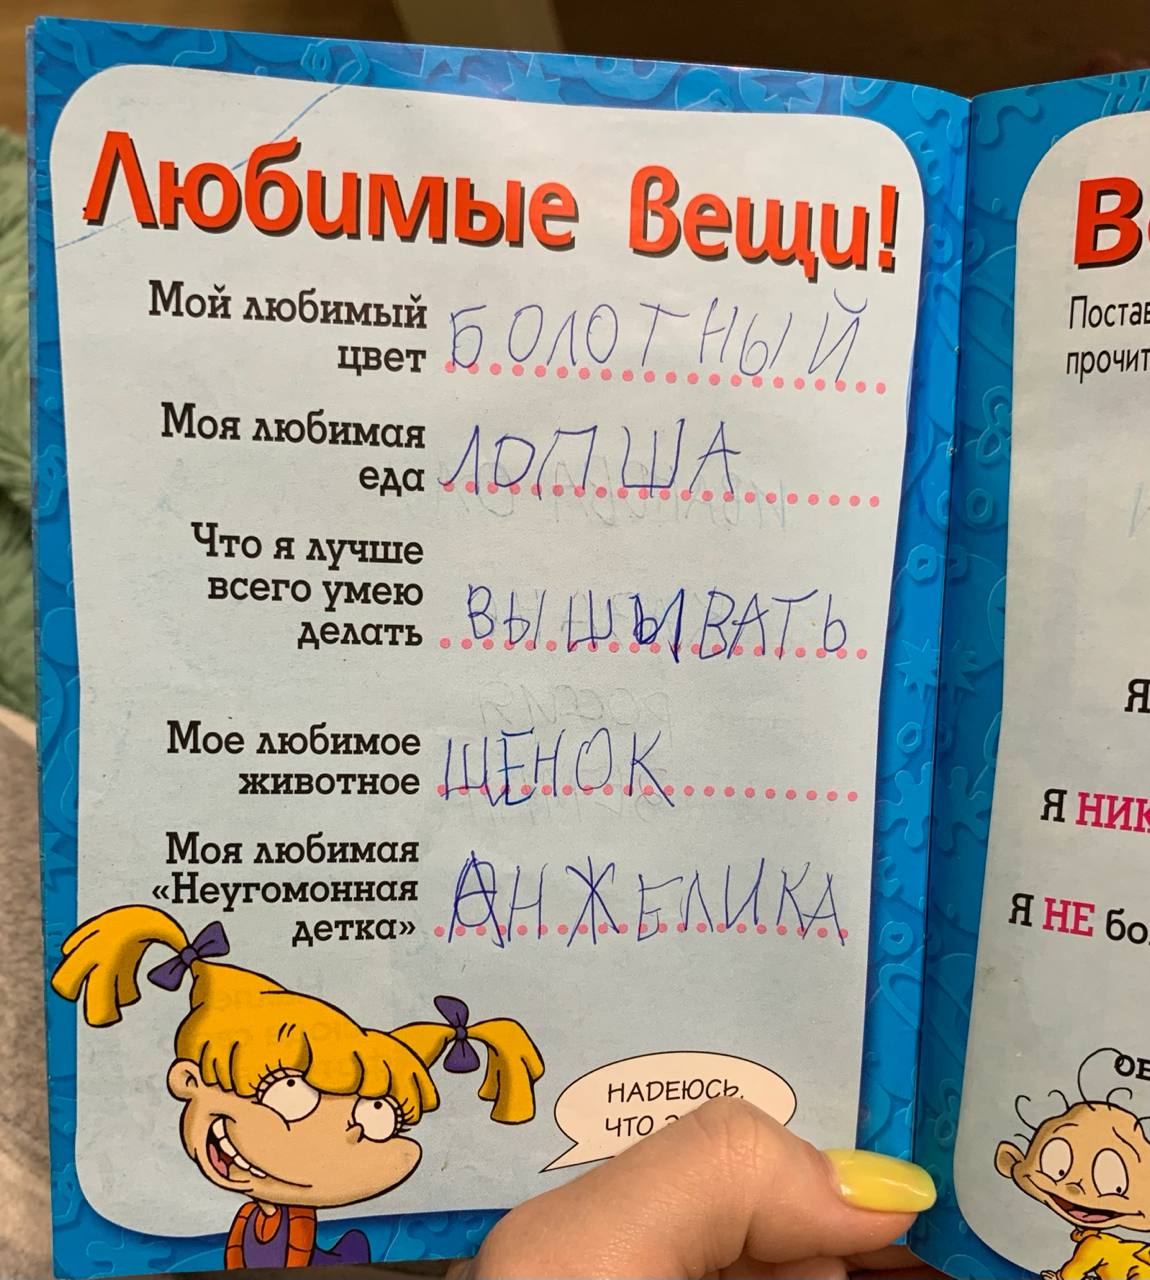 Любимые вещи!
Мой любимый
цвет БОЛОТНЫЙ
Моя любимая
еда ЛОПША
Что я лучше
всего умею
делать ВЫШЫВАТЬ
Мое любимое
животное ЩЕНОК
Моя любимая
«Неугомонная
детка» АНЖЕЛИКА
НАДЕЮСЬ,
ЧТО
Я
Я НЕ